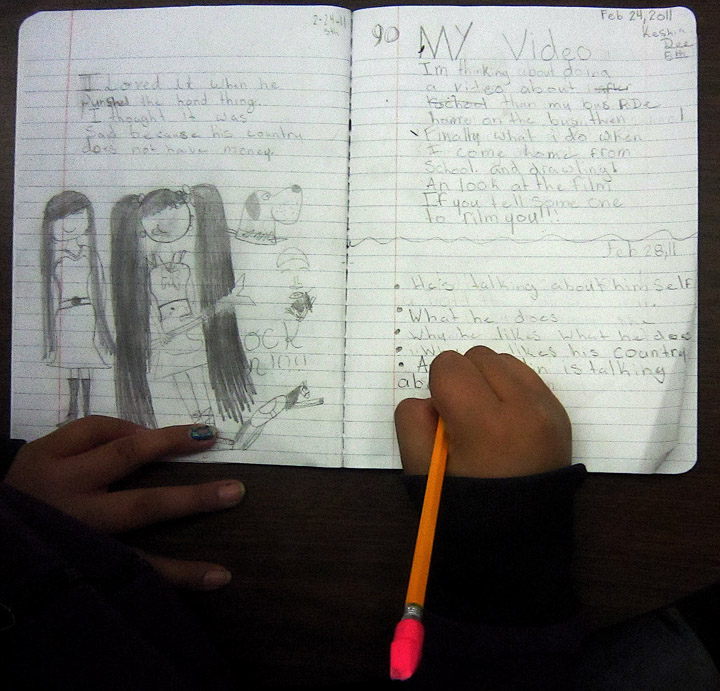 2-24-11
5th
I Loved it when he
punshel the hand thing.
I thought it was
Sad because his country
does not have money.
ock
90
Feb 24, 2011
Keshia
Dee
5th
MY Video
Im thinking about doing
a video about
than my bus RiDe
home on the bus. then
Finally what i do when
I come home from
School. and drawling!
An look at the film
If you tell some one
to film you!!!
Feb 28, 11
• He's talking about himself
• What he does
• Why he likes what he does
• likes his country
• is talking
ab